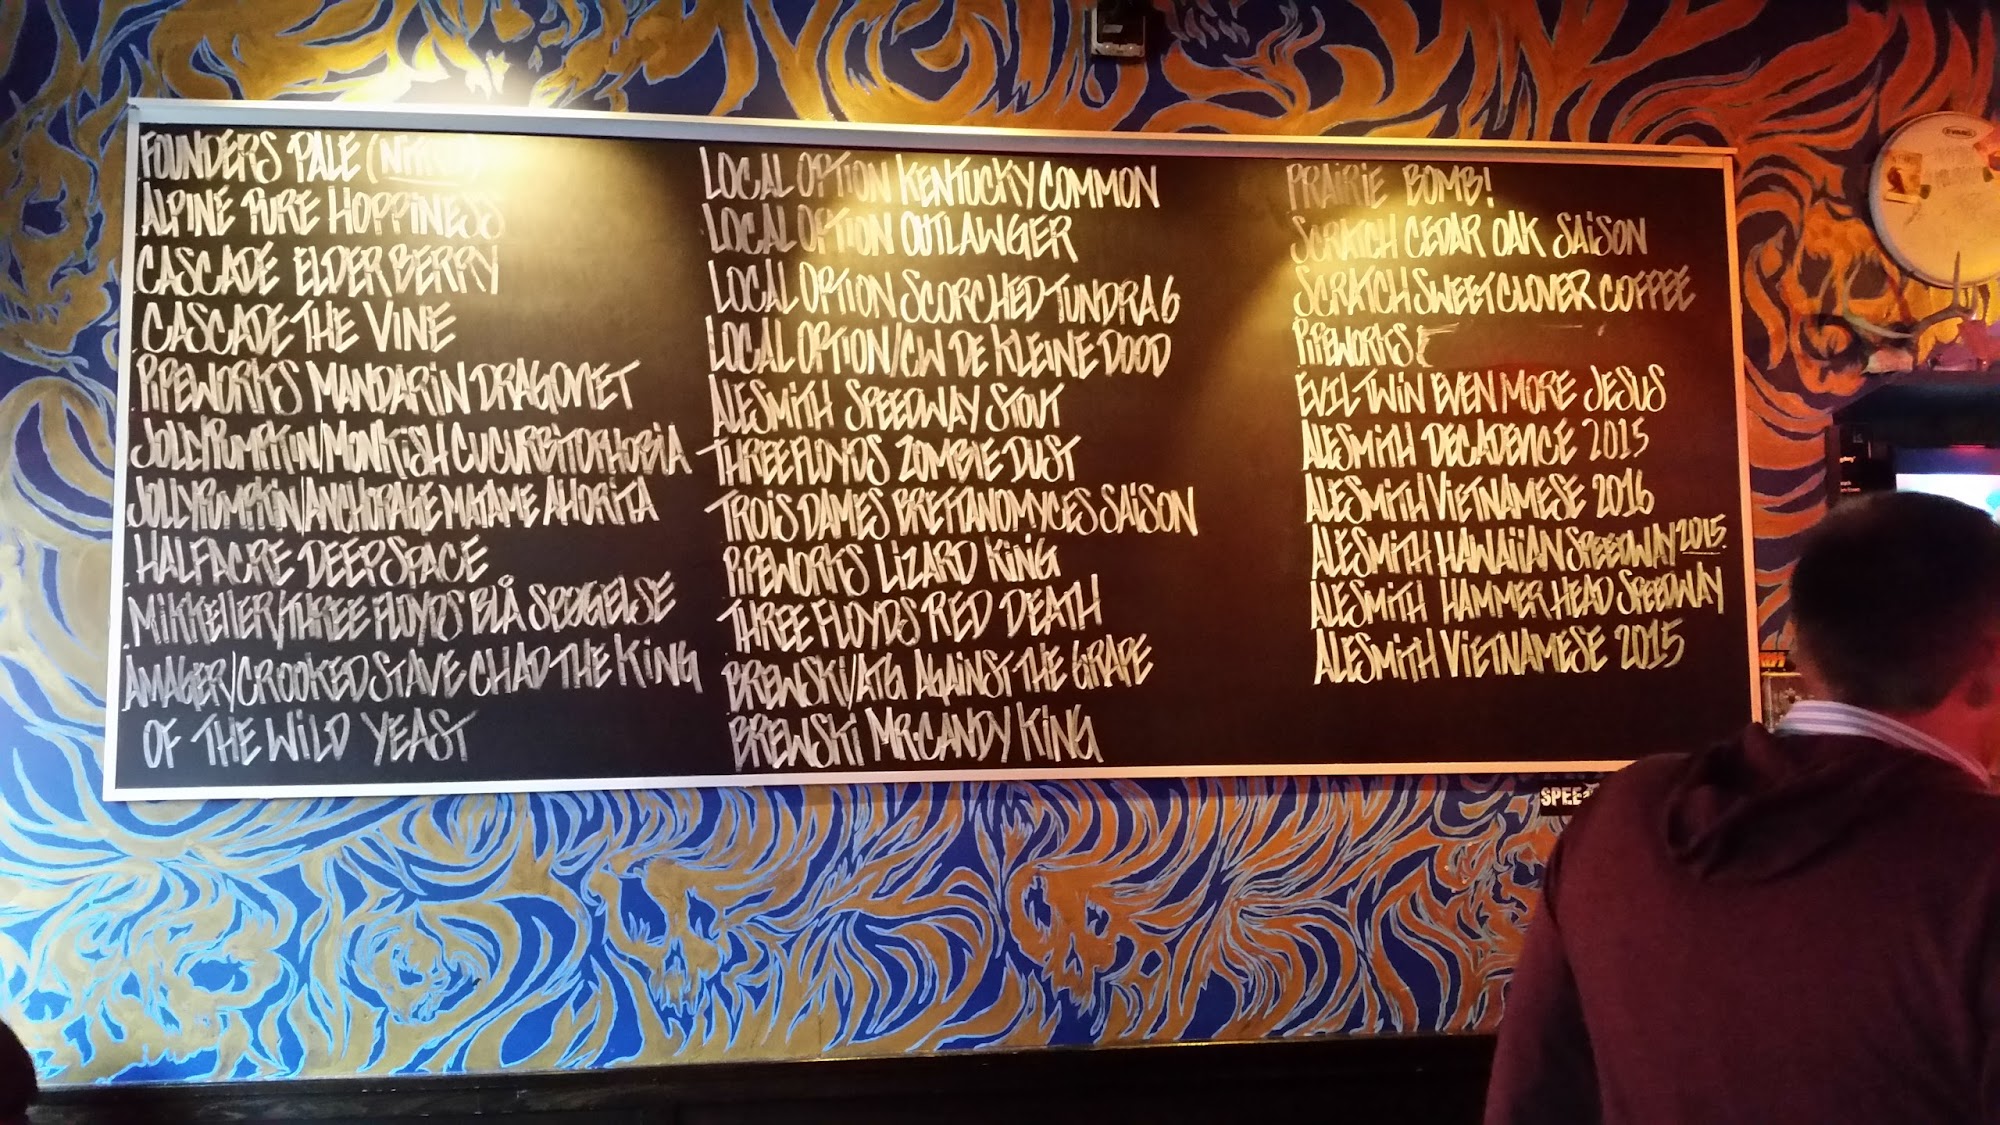 FOUNDERS PALE (NITRO)
ALPINE PURE HOPPINESS
CASCADE ELDERBERRY
CASCADE THE VINE
PIPEWORKS MANDARIN DRAGONET
JOLLYPUMPKIN/MONKISH CUCURBITOPHOBIA
JOLLYPUMPKIN/ANCHORAGE MATAME AHORITA
HALFACRE DEEP SPACE
MIKKELLER/THREE FLOYDS BLÅ SPØGELSE
AMAGER/CROOKED STAVE CHAD THE KING
OF THE WILD YEAST
LOCAL OPTION KENTUCKY COMMON
LOCAL OPTION OUTLAWGER
LOCAL OPTION SCORCHED TUNDRA 6
LOCAL OPTION/CW DE KLEINE DOOD
ALESMITH SPEEDWAY STOUT
THREE FLOYDS ZOMBIE DUST
TROIS DAMES BRETTANOMYCES SAISON
PIPEWORKS LIZARD KING
THREE FLOYDS RED DEATH
BREWSKI/ATG AGAINST THE GRAPE
BREWSKI MR.CANDY KING
PRAIRIE BOMB!
SCRATCH CEDAR OAK SAISON
SCRATCH SWEET CLOVER COFFEE
PIPEWORKS
EVIL TWIN EVEN MORE JESUS
ALESMITH DECADENCE 2015
ALESMITH VIETNAMESE 2016
ALESMITH HAWAIIAN SPEEDWAY 2015
ALESMITH HAMMERHEAD SPEEDWAY
ALESMITH VIETNAMESE 2015
EVANS